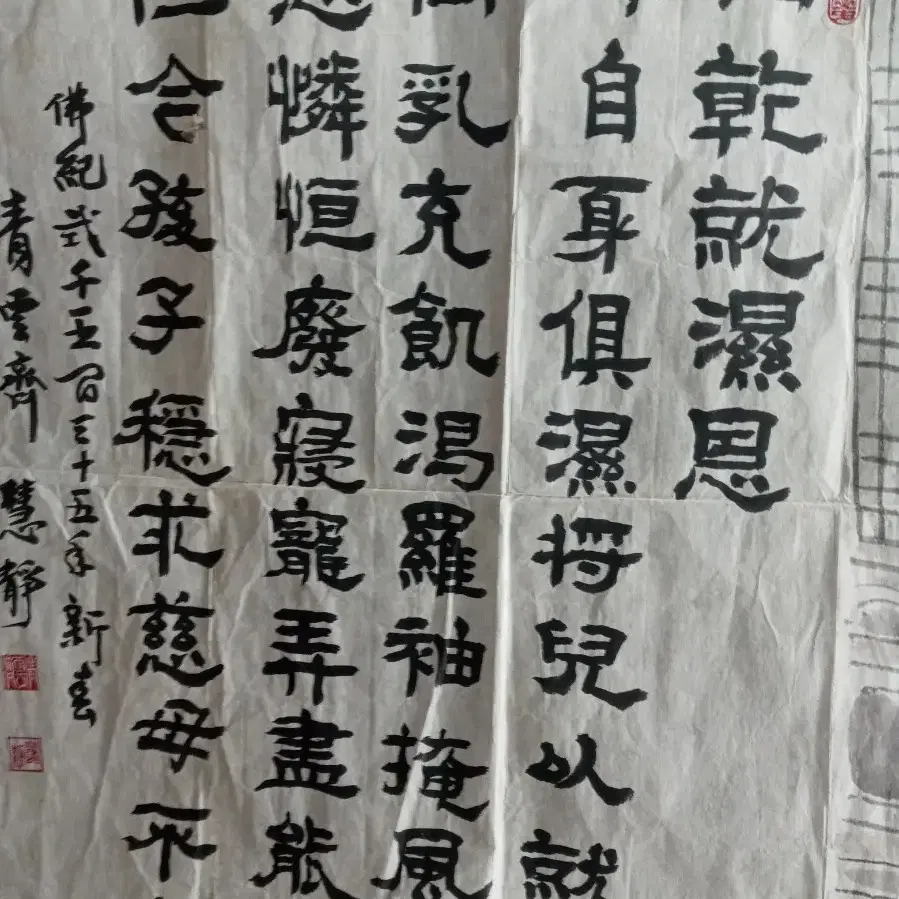 乾就濕恩
自身俱濕將兒以就
乳充飢渴羅袖掩風
憐恒廢寢寵弄盡能
令孩子穩求慈母不
佛紀弍千五百三十五年新春
青雲齊慧靜